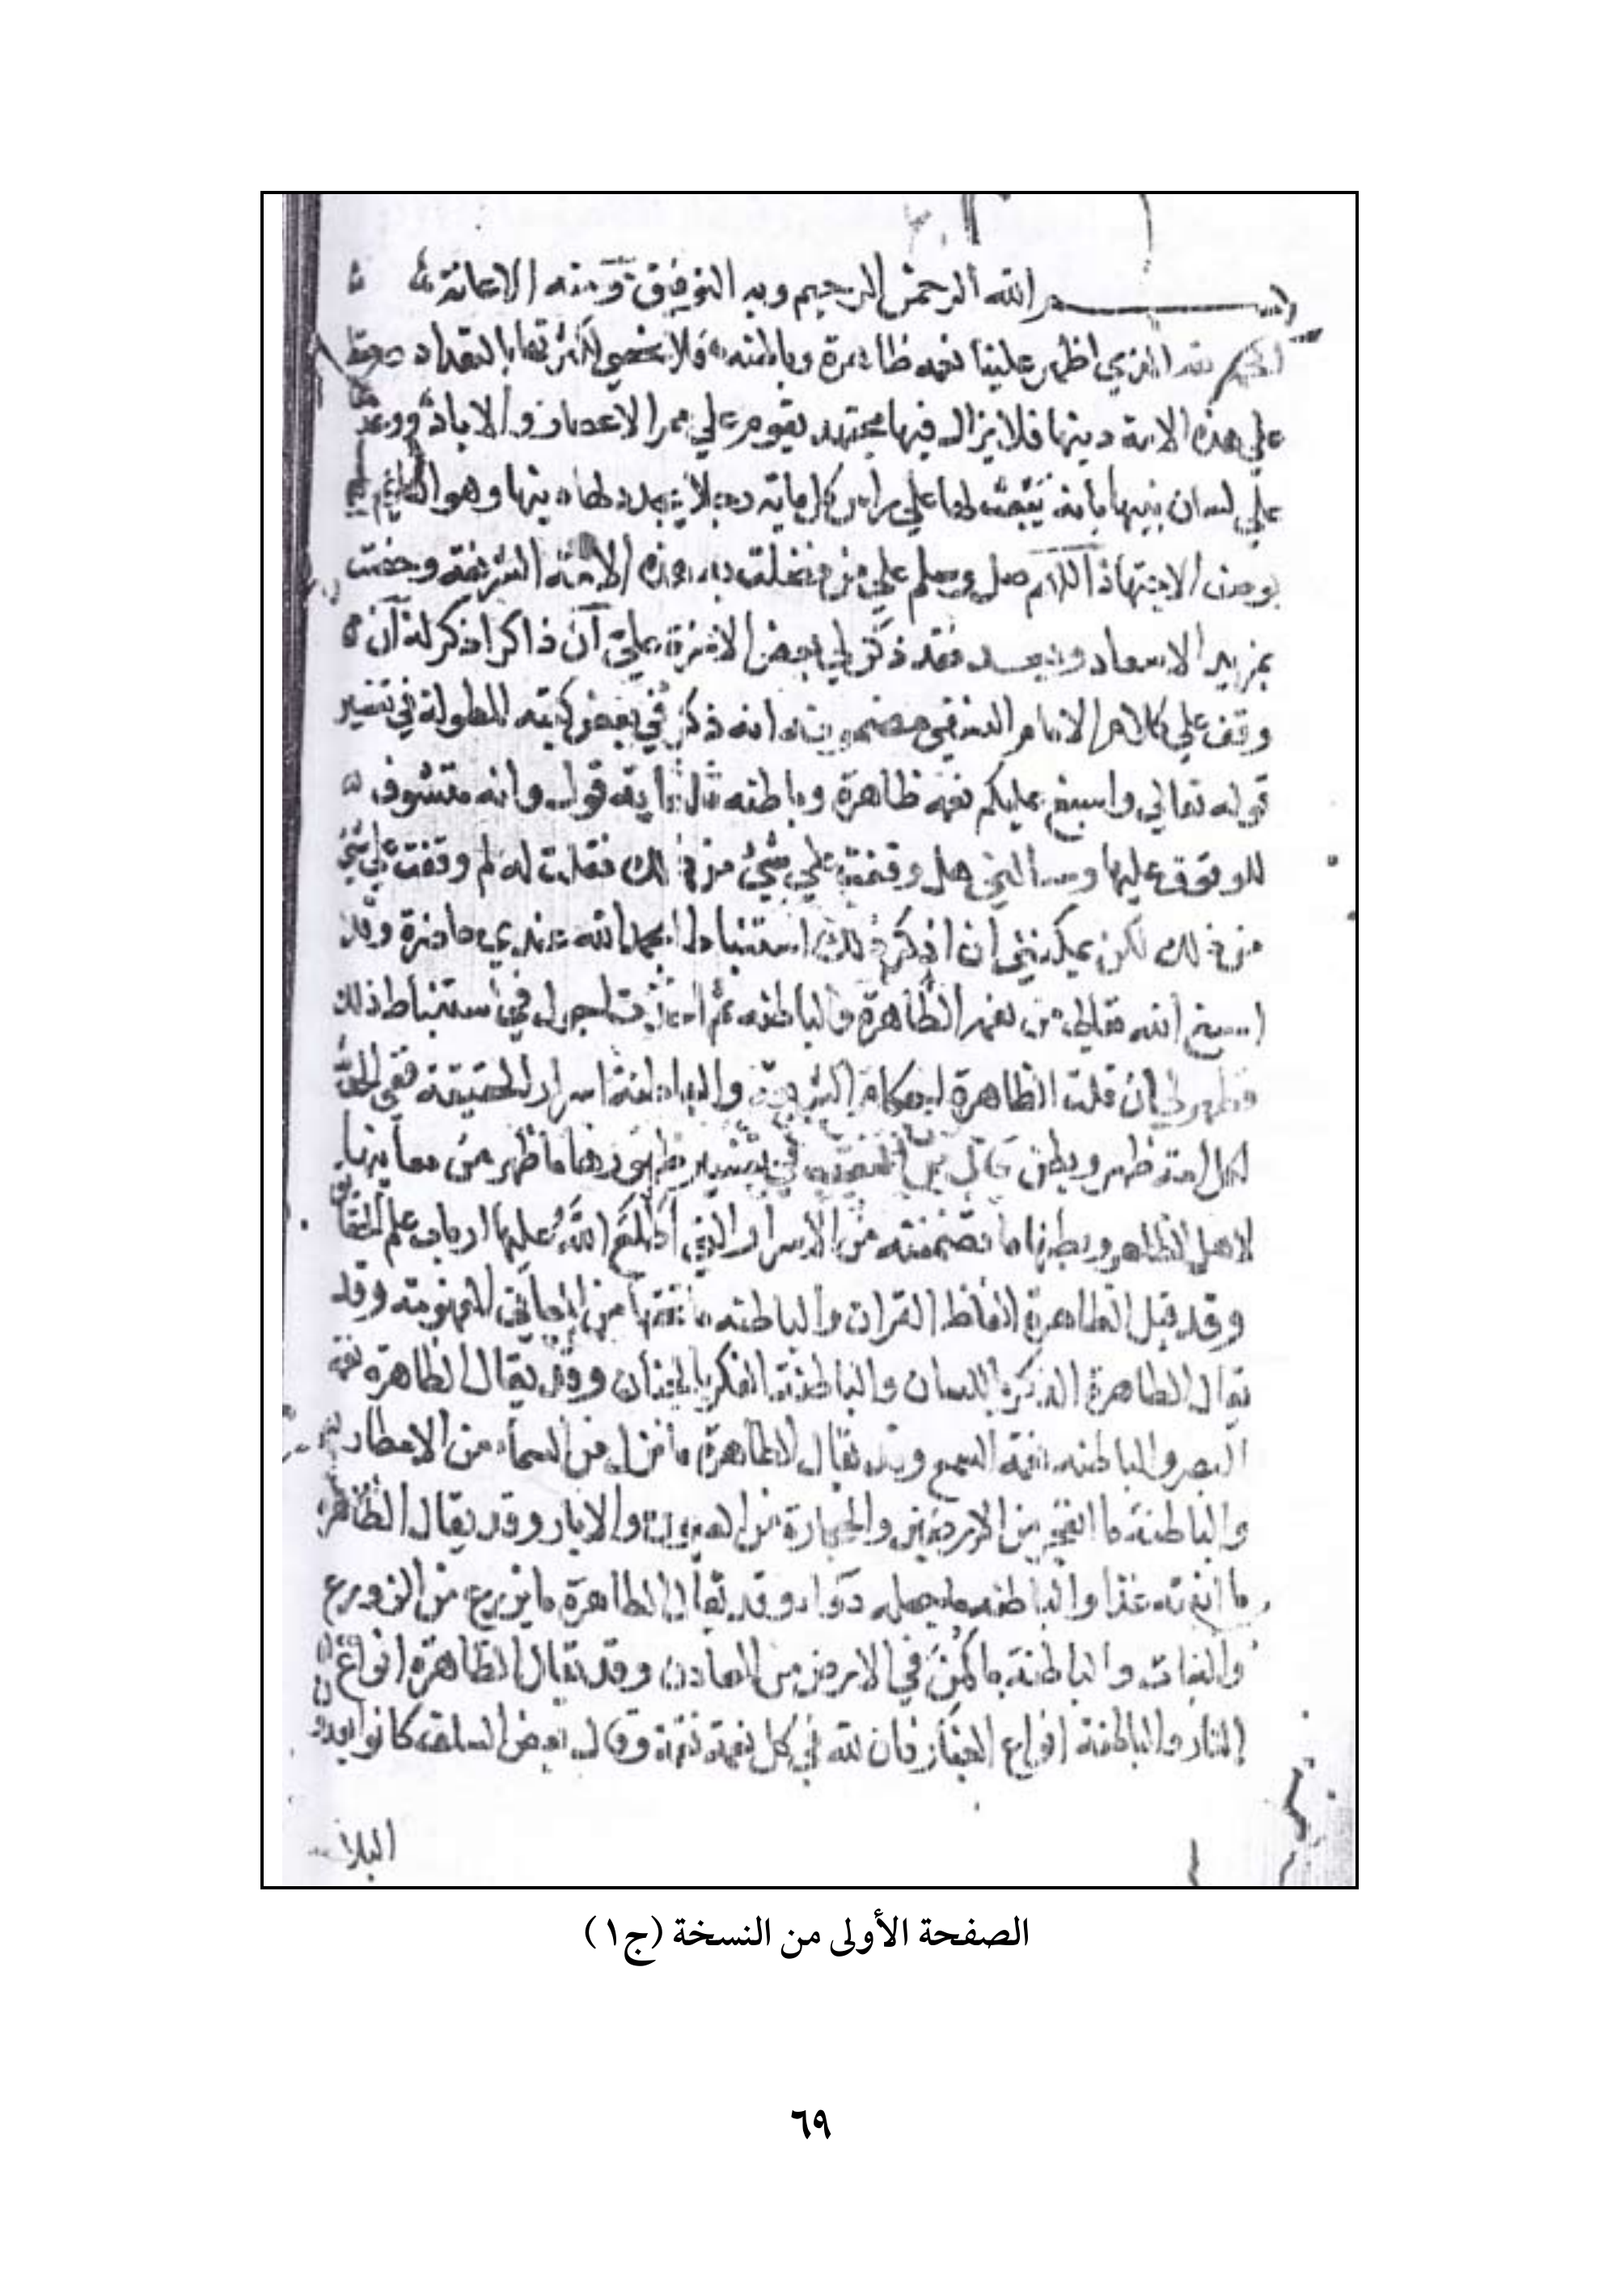 بسم الله الرحمن الرحيم وبه التوفيق ومنه الاعانة
الحمد لله الذي اظهر علينا نعمه ظاهرة وباطنه فلا نحصي لكثرتها بالتعداد
علي هذه الامة دينها فلا يزال فيها مجتهد يقوم علي ممر الاعصار والاباد ووعد
علي لسان نبيها بانه يبعث لها علي راس كل ماية رجلا يجدد لها دينها وهو القايم
بوصف الاجتهاد اللهم صل وسلم علي من فضلت به هذه الامة الشريفة وخصت
بمزيد الاسعاد وبعد فقد ذكر لي بعض الاعزة علي ان ذاكرا ذكر له ان
وقف علي كلام الامام النسفي مضمونه انه ذكر في بعض كتبه المطولة في تفسير
قوله تعالي واسبغ عليكم نعمه ظاهرة وباطنه ثلثماية قول وانه متشوف
للوقوف عليها وسالني هل وقفت علي شيئ من ذلك فقلت له لم وقفت علي شيئ
من ذلك لكن يمكنني ان اذكر ذلك استنباطا بحمد الله عندي حاضرة وقد
اسبغ الله تعالى من نعمه الظاهرة والباطنه ثم اخذت اجول في استنباط ذلك
فظهر لي ان قلت الظاهرة احكام الشريعة والباطنة اسرار الحقيقة ففي الحديث
لكل اية ظهر وبطن قال ابن النقيب في تفسير ظهورها ما ظهر من معانيها
لاهل الظاهر وبطنها ما تضمنته من الاسرار التي اطلع الله عليها ارباب علم الحقايق
وقد قيل الظاهرة الفاظ القران والباطنه ما تحتها من المعاني المفهومة وقد
يقال الظاهرة الذكر باللسان والباطنة الفكر بالجنان وقد يقال الظاهرة نعمة
البصر والباطنه نعمة السمع وقد يقال الظاهرة ما نزل من السماء من الامطار
والباطنة ما انفجر من الارضين والحجارة من العيون والابار وقد يقال الظاهرة
ما انبته غذا والباطنه ما جعله دواء وقد يقال الظاهرة ما يزرع من الزروع
والنبات والباطنة ما كمن في الارض من المعادن وقد يقال الظاهرة انواع
النار والباطنة انواع فان لله في كل نقمة نعمة وقال بعض السلف كانوا يعدون
البلا
الصفحة الأولى من النسخة (ج١)
٦٩